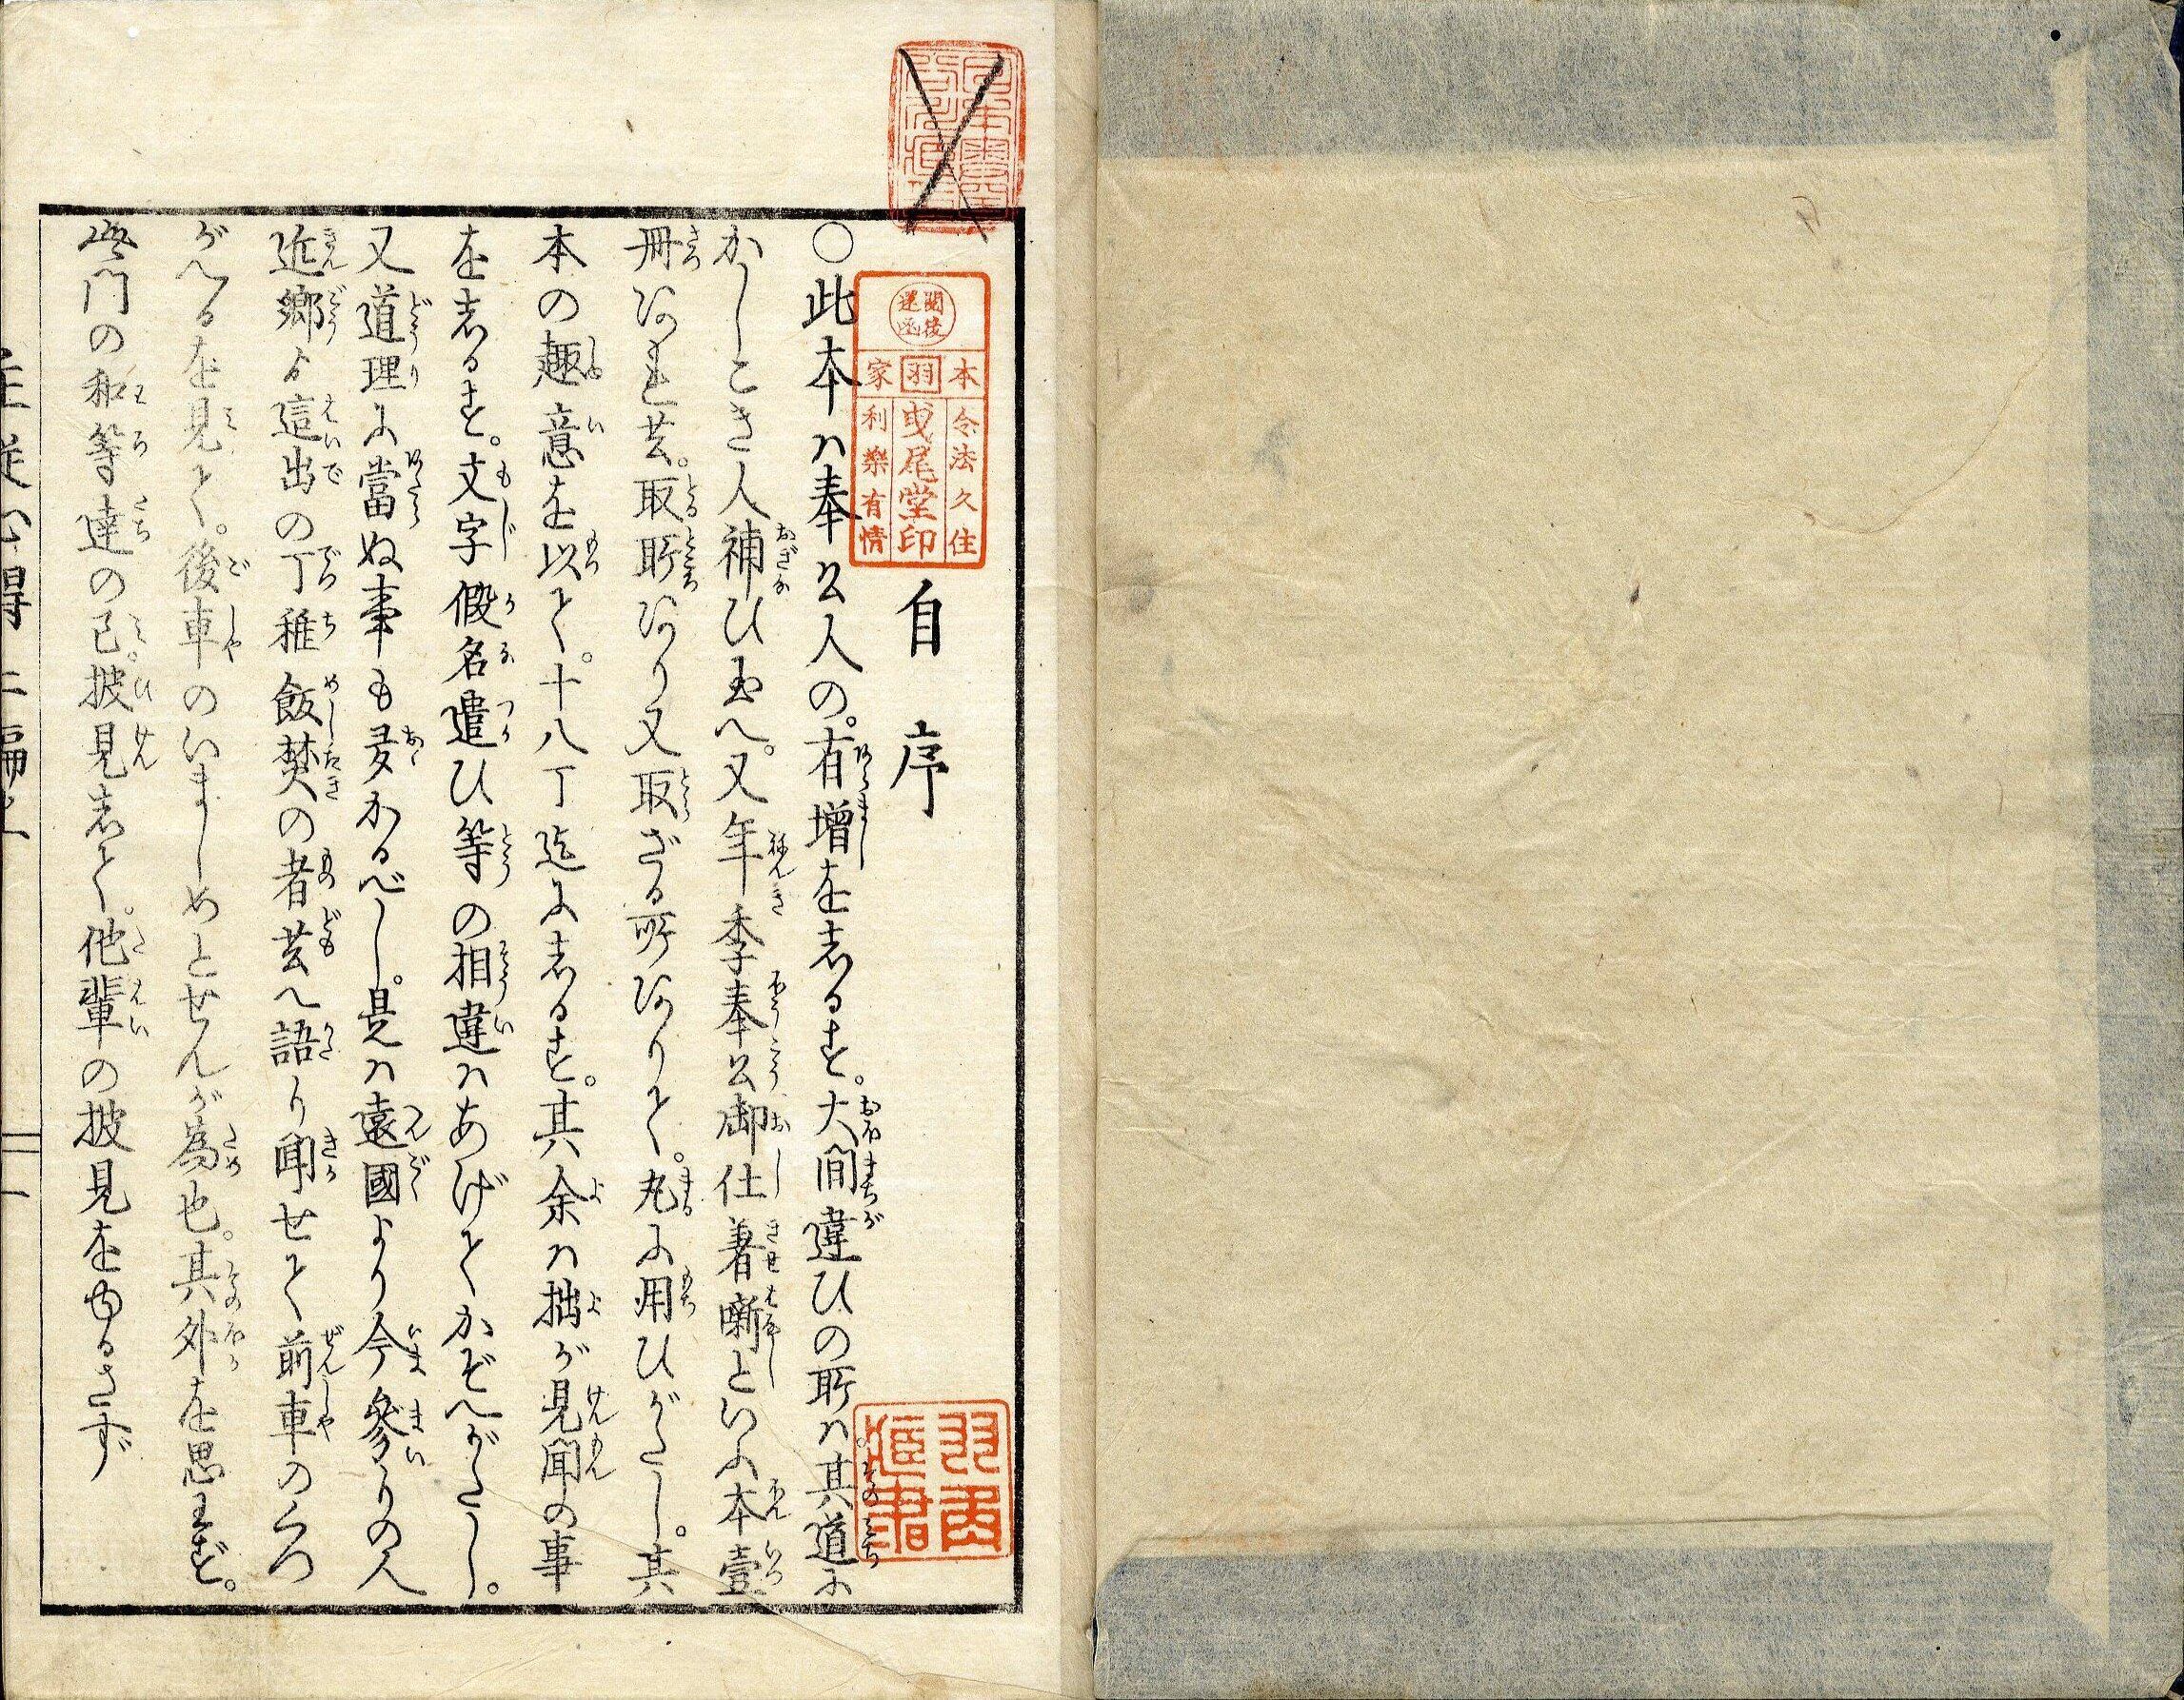 自序
○此本ハ奉公人の。有増をしるす。大間違ひの所ハ。其道に
かしこき人補ひ玉へ。又年季奉公御仕着噺といふ本壹
冊あれ共。取所あり又取ざる所ありて。丸に用ひがたし。其
本の趣意を以て。十八丁迄にしるす。其余ハ拙が見聞の事
をしるす。文字假名遣ひ等の相違ハあげてかぞへがたし。
又道理に當ぬ事も多かるべし。是ハ遠國より今參りの人
近郷よ這出の丁稚飯焚の者共へ語り聞せて前車のくつ
がへるを見て。後車のいましめとせんが為也。其外を思わず。
無門の和等達の已。披見して。他輩の披見をゆるさず
閲後還函
本家
羽
令法久住
曳尾堂印
利樂有情
主従心得二編上